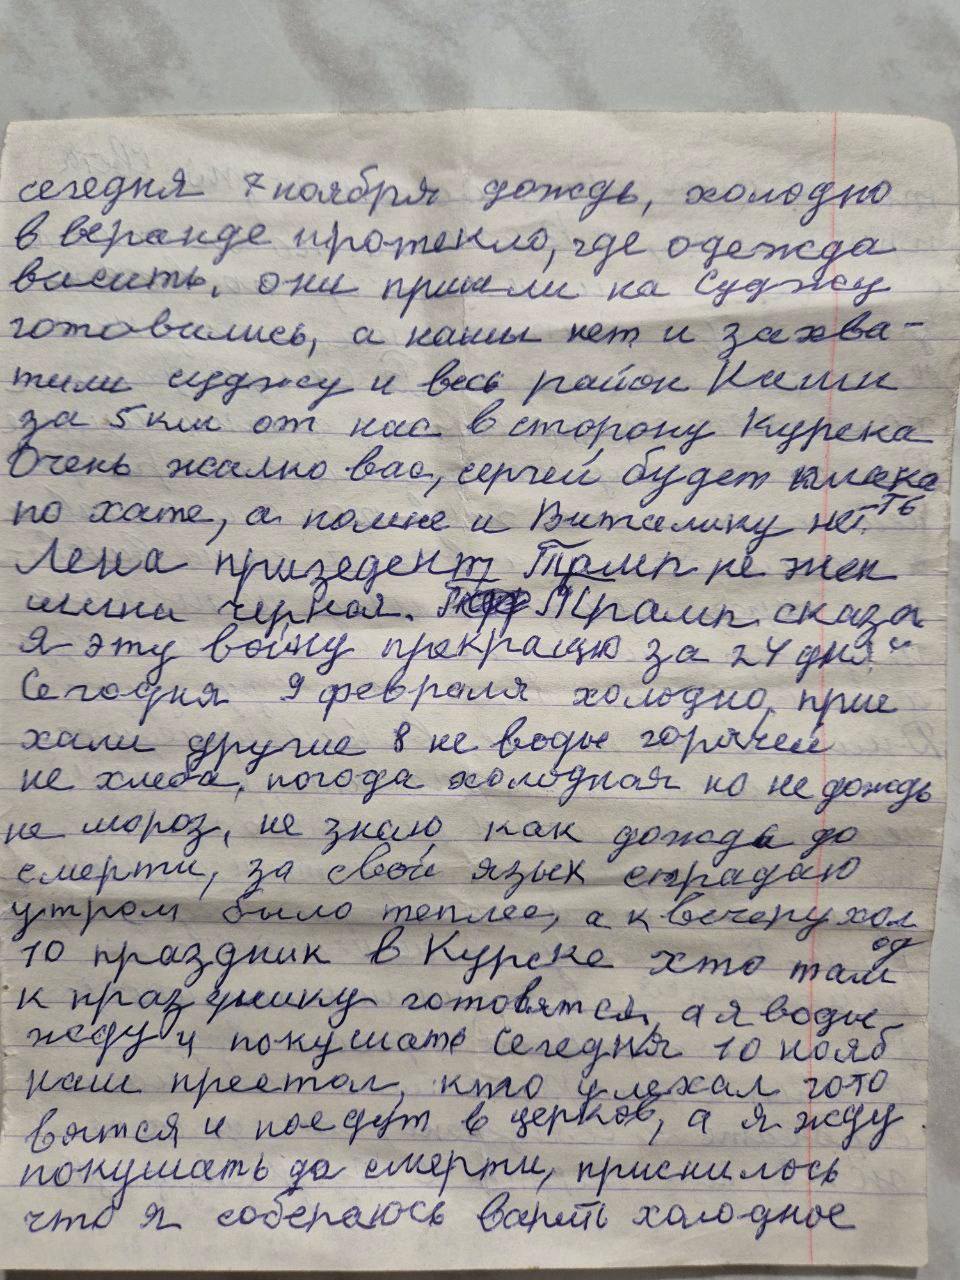 сегодня 7 ноября дождь, холодно
в веранде протекло, где одежда
висить, они пришли на Суджу
готовились, а наши нет и захва-
тили суджу и весь район Наши
за 5 км от нас в сторону Курска
Очень жалко вас, сергей будет плака
ть
по хате, а помне и Виталику нет.
Лена призедент Трамп не жен
щина черная. Трамп сказал
я эту войну прекращю за 24 дня"
Сегодня 9 февраля холодно, прие
хали другие 8 не воды горячей
не хлеба, погода холодная но не дождь
не мороз, не знаю как дождь до
смерти, за свой язык страдаю
утром было теплее, а к вечеру хол
од
10 праздник в Курске хто там
к празднику готовятся, а я воды
жду и покушать Сегодня 10 нояб
наш престол, кто уехал гото
вятся и поедут в церков, а я жду
покушать до смерти, приснилось
что я собераюсь варить холодное